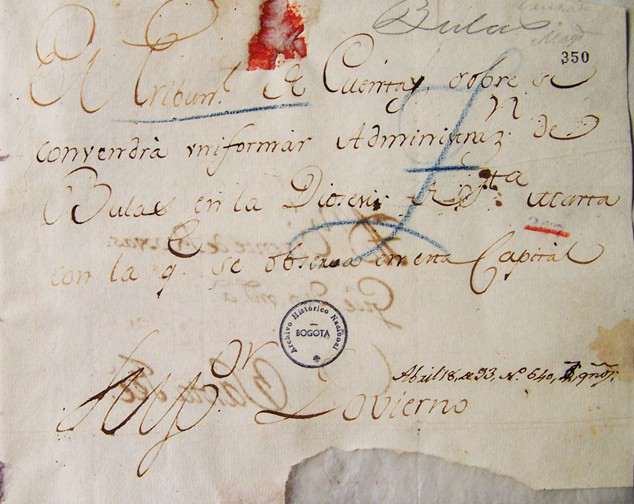 Bulas
350
El Tribun.l de Cuentas, sobre si
convendrà vniformar Administraz.n de
Bulas en la Diocesis de S.ta Marta
con la q. se observa en esta Capital
Archivo Histórico Nacional
BOGOTA
Sup.or Govierno
Abril 18, de 93, N.o 640,